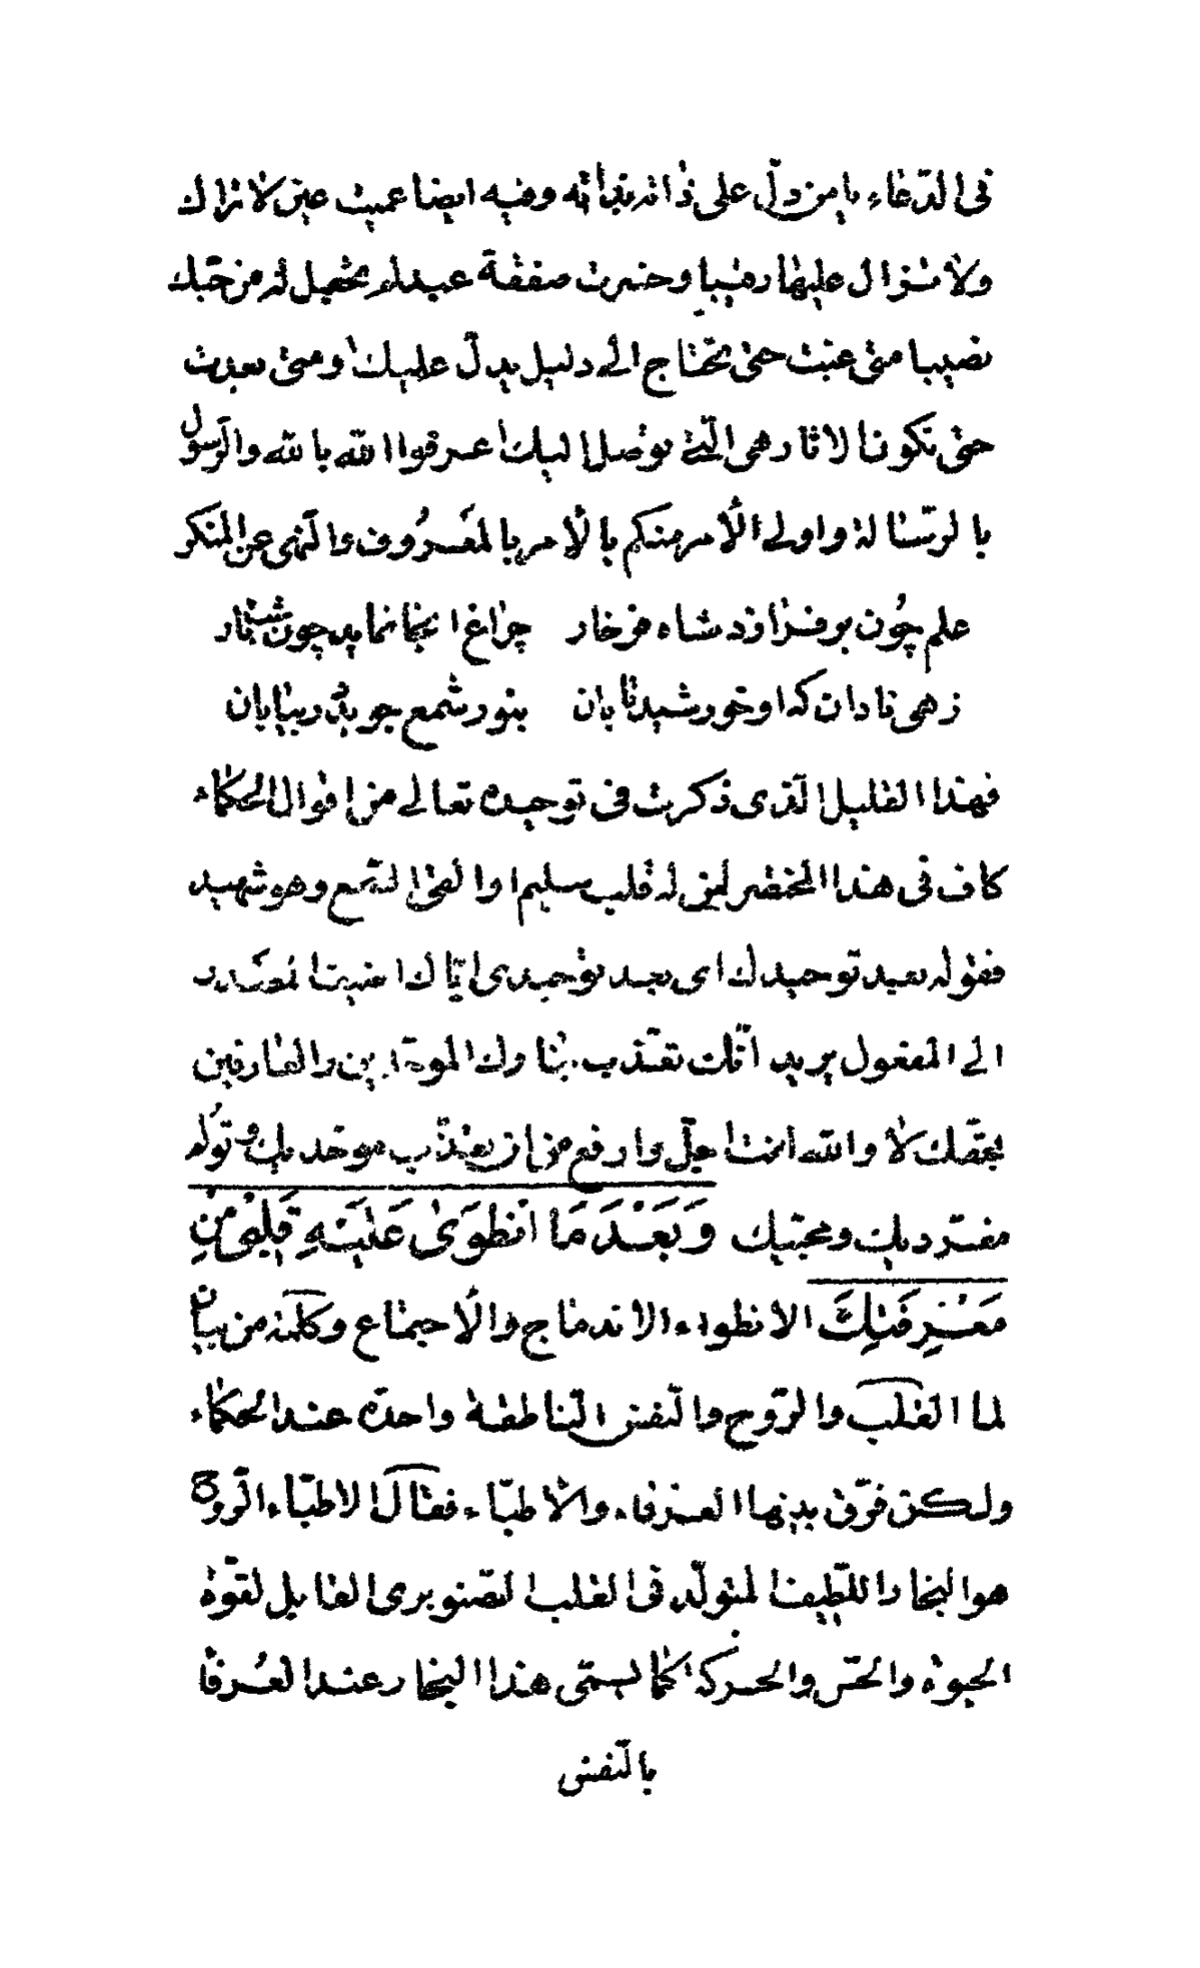 فى الدّعاء يا من دلّ على ذاته بذاته وفيه ايضا عميت عين لا تراك
ولا تزال عليها رقيبا وخسرت صفقة عبد لم تجعل له من حبّك
نصيبا متى غبت حتى تحتاج الى دليل يدلّ عليك ومتى بعدت
حتى تكون الاثار هى الّتى توصل اليك اعرفوا الله بالله والرّسول
بالرّسالة واولى الأمر منكم بالأمر بالمعروف والنّهى عن المنكر
علم چون برفرازد شاه فرخار چراغ انجا نمايد چون شب تار
زهى نادان كه او خورشيد تابان بنور شمع جويد در بيابان
فهذا القليل الّذى ذكرت فى توحيده تعالى من اقوال الحكماء
كاف فى هذا المختصر لمن له قلب سليم او القى السّمع وهو شهيد
فقوله بعد توحيدك اى بعد توحيدى ايّاك اضيف المصدر
الى المفعول يريد انّك تعذّب بنارك الموحّدين والعارفين
بحقّك لا والله انت اجلّ وارفع من ان تعذّب موحّديك وتوله
مفرديك ومحبّيك وَبَعْدَ مَا انْطَوىٰ عَلَيْهِ قَلْبى مِنْ
مَعْرِفَتِكَ الانطواء الاندماج والأجتماع وكلمة من بيان
لما القلب والرّوح والنّفس النّاطقة واحدة عند الحكماء
ولكن فرّق بينها العرفاء والأطبّاء فقال الاطبّاء الرّوح
هو البخار اللّطيف المتولّد فى القلب الصّنوبرى القابل لقوّة
الحيوة والحسّ والحركة كما يسمّى هذا البخار عند العرفا
بالنّفس